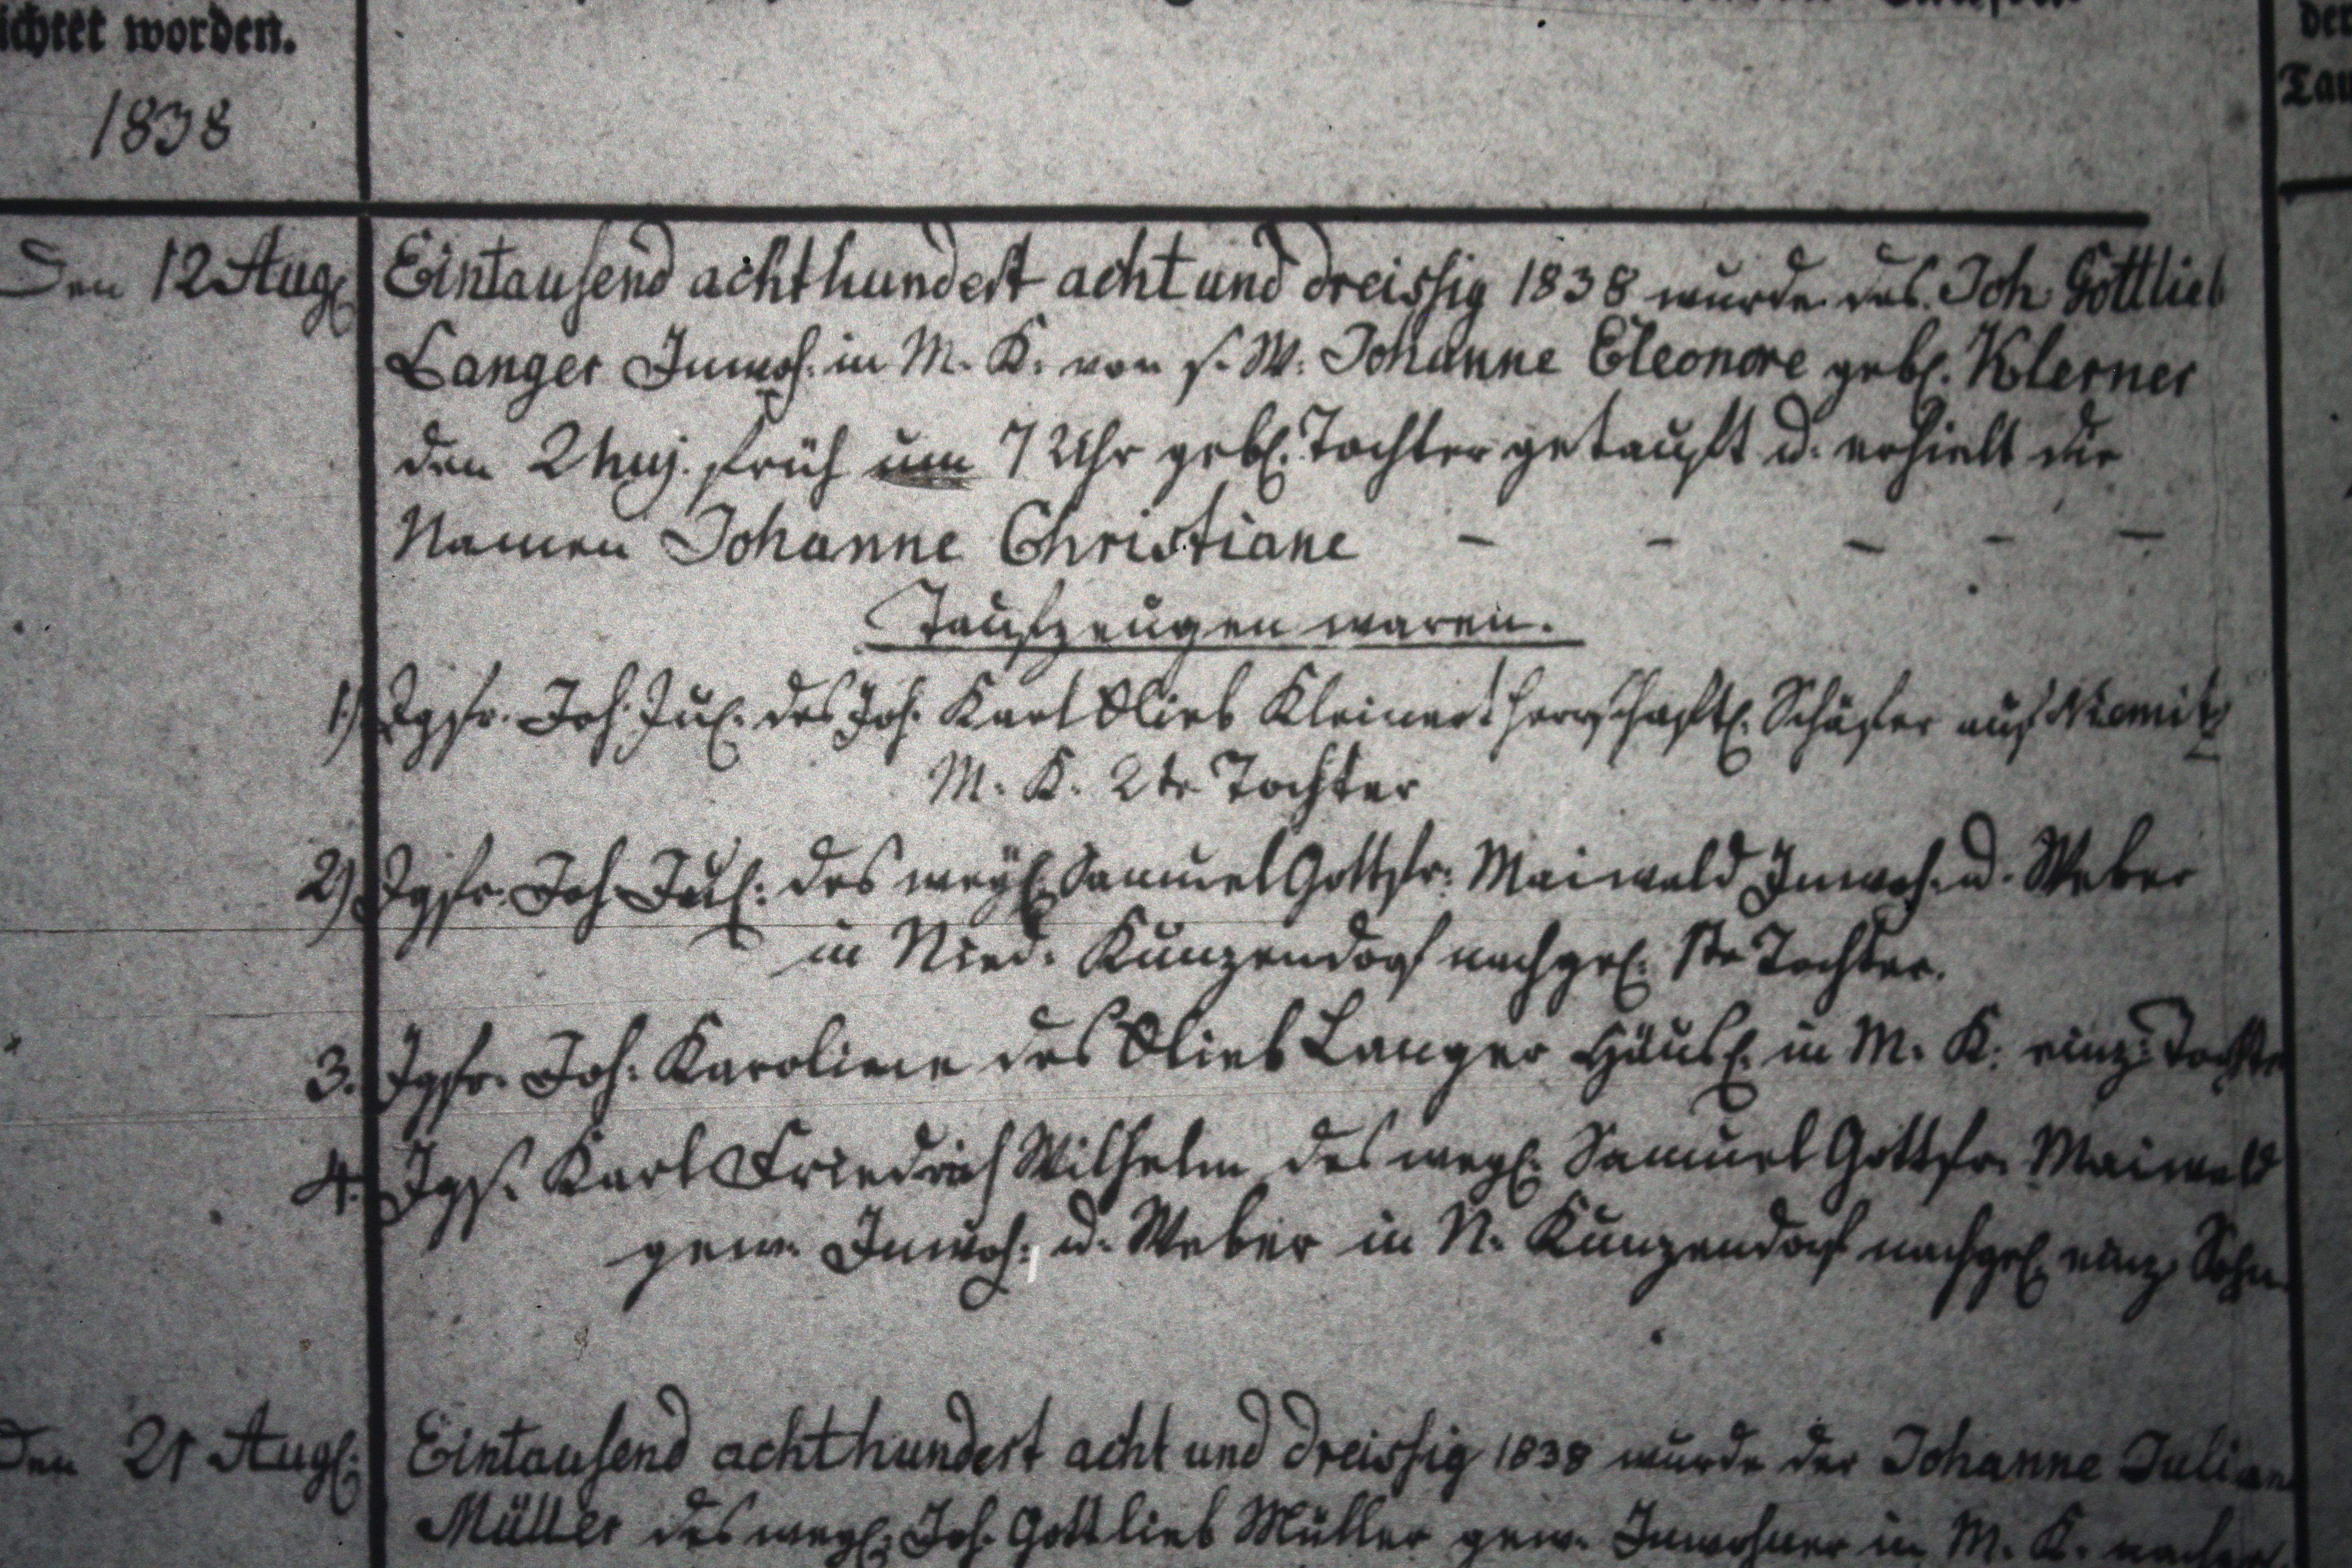 ichtet worden.
1838
den
Tau
Den 12 Aug.
Eintausend achthundert acht und dreissig 1838 wurde des Joh Gottlieb
Langer Inwoh: in M. K. von s. W. Johanne Eleonore gebl. Klerner
den 2 huj. früh um 7 Uhr gebl. Tochter getauft u. erhielt die
Namen Johanne Christiane - - - - -
Taufzeugen waren.
1.) Jgfr. Joh. Jul. des Joh. Karl Glieb Kleinert herrschaftl. Schäfer auf
M. K. 2te Tochter
2) Jgfr. Joh Jul: des weyl. Samuel Gottfr: Maiwald Inwoh. u. Weber
in Nied. Kunzendorf nachgel. 1te Tochter.
3. Jgfr. Joh: Karoline des Glieb Langer Häusl. in M. K. einz. Tochter
4. Jgs. Karl Friedrich Wilhelm des weyl. Samuel Gottfr. Maiwald
gew. Inwoh: u. Weber in N. Kunzendorf nachgel. einz. Sohn.
Den 21 Augl.
Eintausend achthundert acht und dreissig 1838 wurde der Johanne Juliane
Müller des weyl. Joh. Gottlieb Müller gew. Inwohner in M. K.